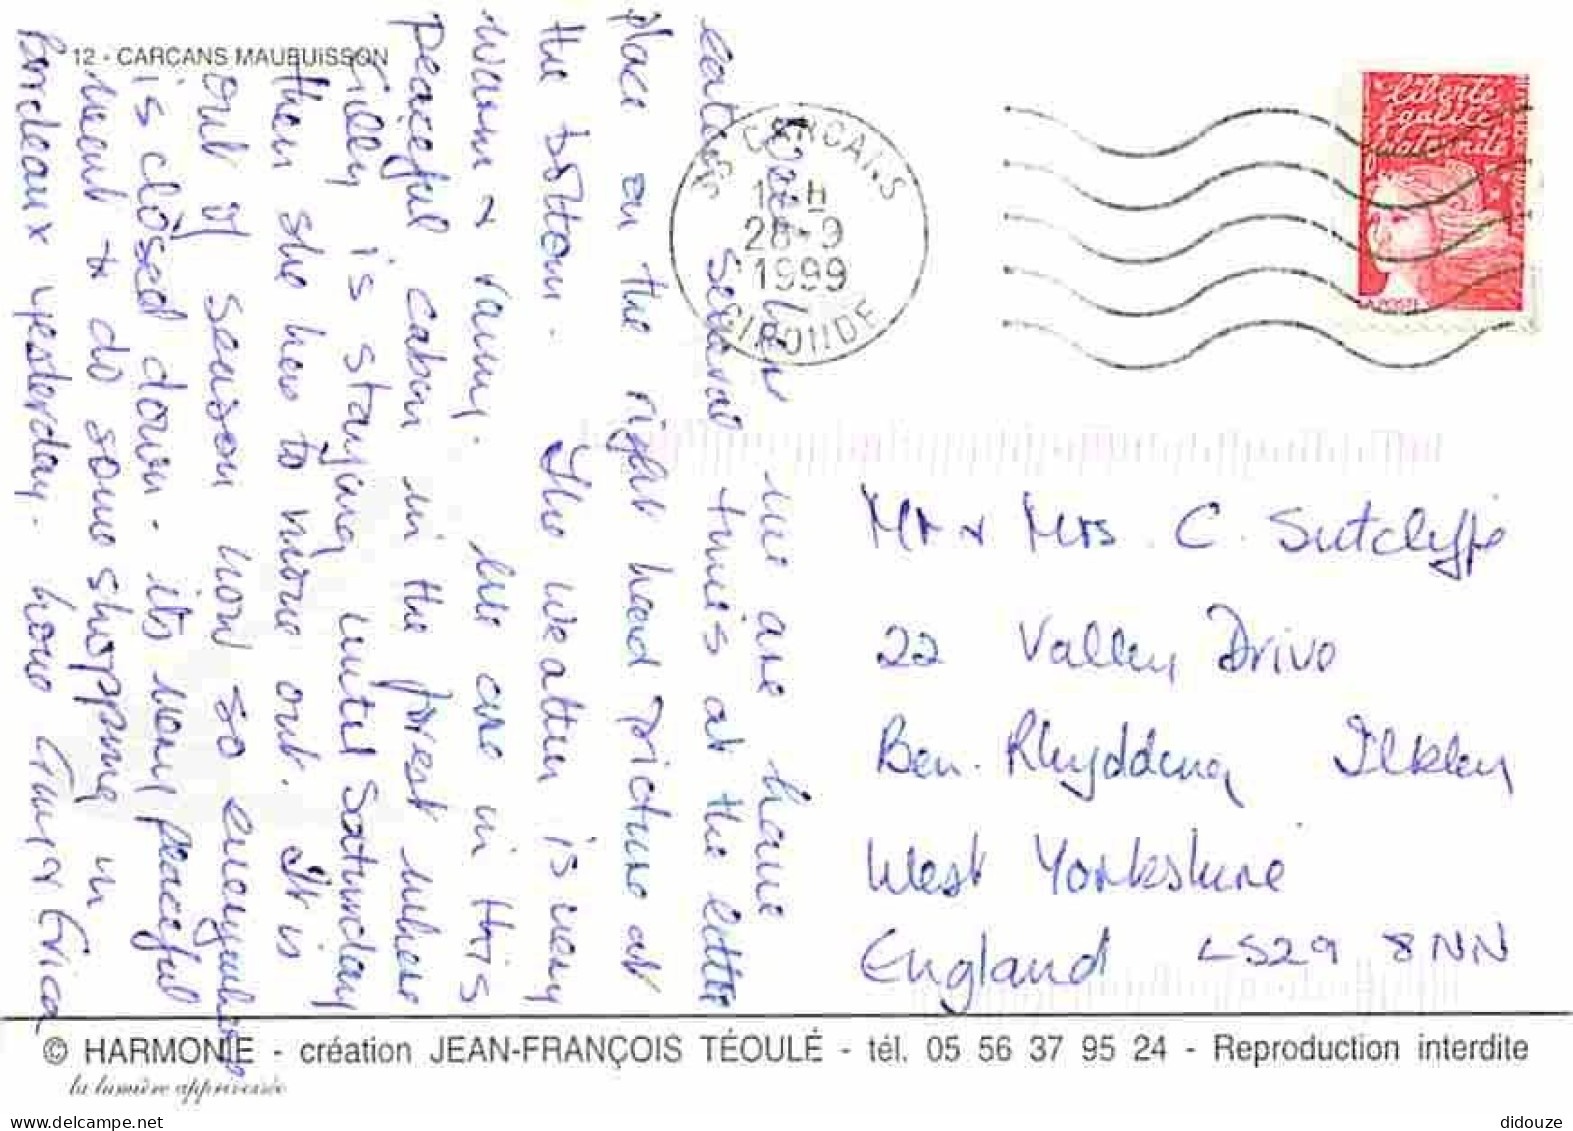 12 - CARCANS MAUBUISSON
While here we are have
eaten several times at the little
place on the right hand picture at
the bottom. The weather is very
warm & rainy. We are in this
peaceful cabin in the forest where
Gilly is staying until Saturday
then she has to move out. It is
out of season now so everywhere
is closed down - its very peaceful
went to do some shopping in
Bordeaux yesterday. love Erica
33 CARCANS
28-9
1999
GIRONDE
Liberté
Égalité
Fraternité
Mr & Mrs. C. Sutcliffe
22 Valley Drive
Ben. Rhydding Ilkley
West Yorkshire
England LS29 8NN
© HARMONIE - création JEAN-FRANÇOIS TÉOULÉ - tél. 05 56 37 95 24 - Reproduction interdite
la lumière apprivoisée
didouze